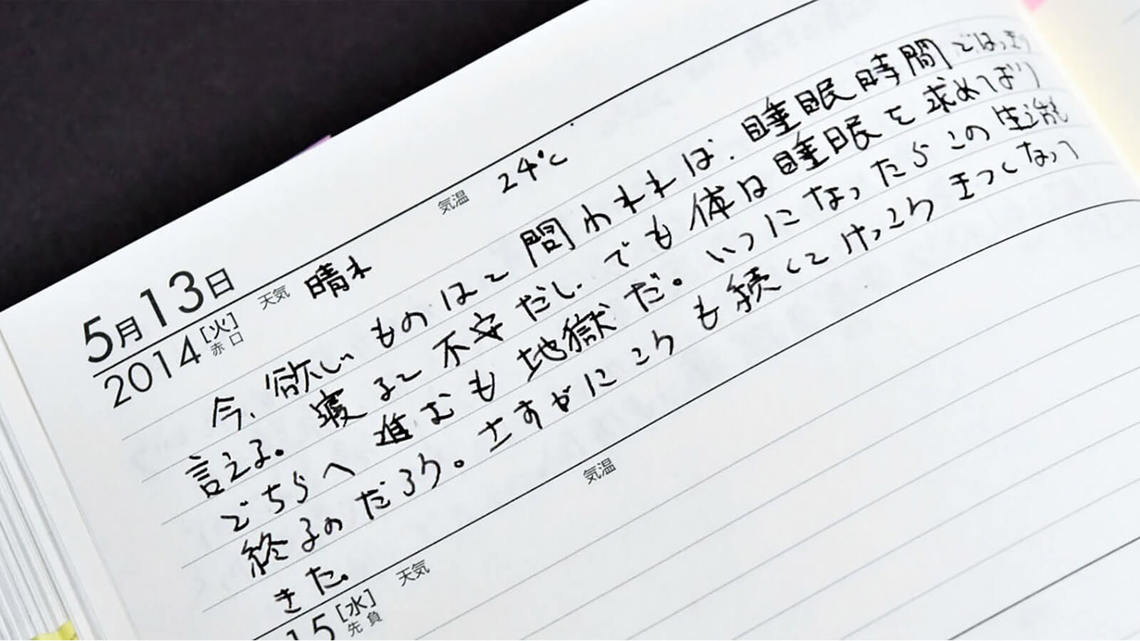 5月13日
2014[火]
赤口
天気 晴れ 気温 24℃
今、欲しいものはと問われれば、睡眠時間ではっきり
言える。寝ると不安だし、でも体は睡眠を求めており
どちらへ進むも地獄だ。いつになったらこの生活も
終るのだろう。さすがにこうも続くとけっこうきつくなって
きた。
15[水]
先負
天気 気温